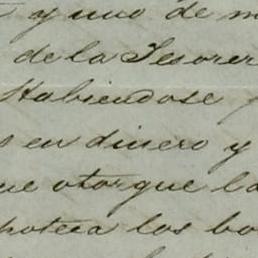 y uno de m
de la Tesorer
Habiendose
s en dinero y
ue otorgue la
poteca los bo